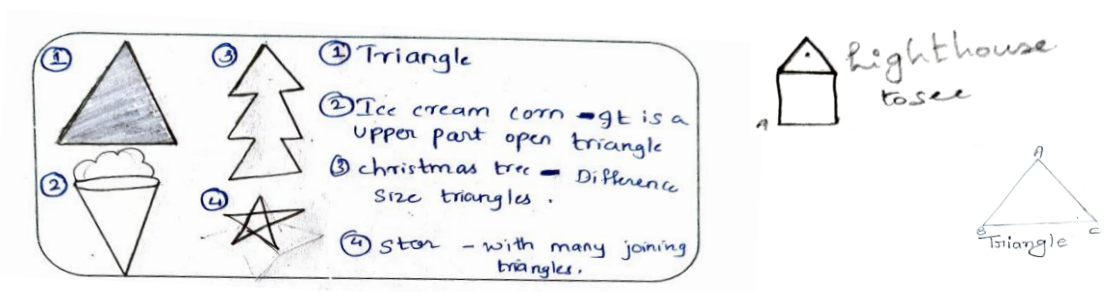 ①
③
②
④
① Triangle
② Ice cream corn - It is a
upper part open triangle
③ christmas tree - Difference
size triangles.
④ Star - with many joining
triangles.
Lighthouse
to see
A
A
B
C
Triangle